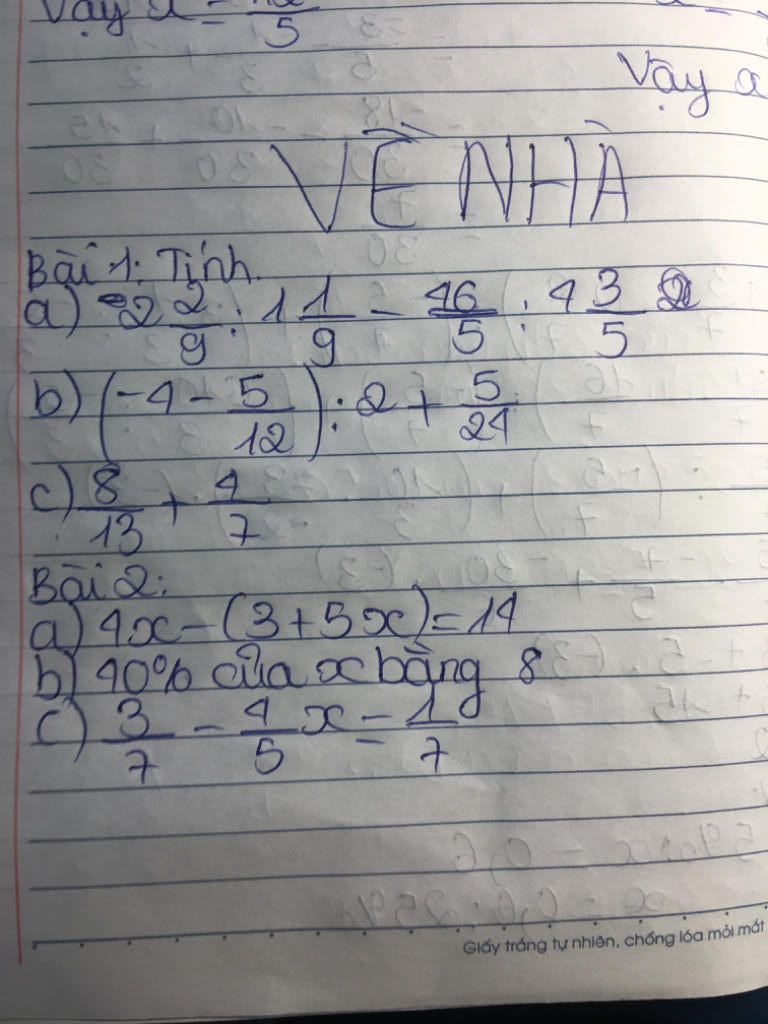 Vậy x = /5
Vậy x
VỀ NHÀ
Bài 1: Tính.
a) -2 2/9 : 1 1/9 - 46/5 : 4 3/5
b) (-4 - 5/12) : 2 + 5/24
c) 8/13 + 4/7
Bài 2:
a) 4x - (3 + 5x) = 14
b) 40% của x bằng 8
c) 3/7 - 4/5 x = 1/7
Giấy trắng tự nhiên, chống lóa mỏi mắt